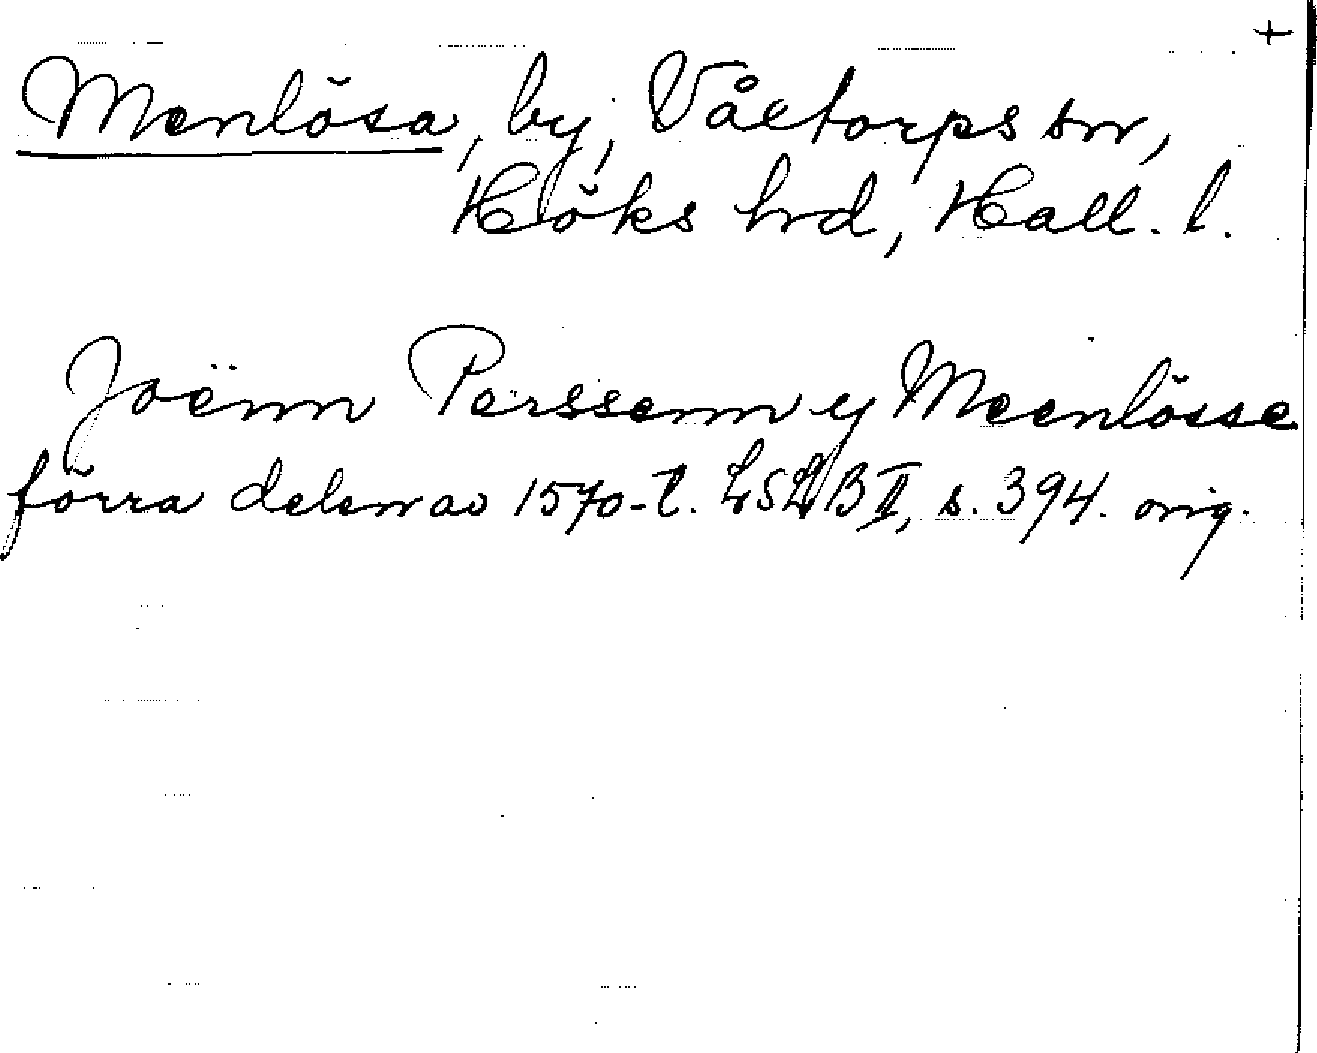 +
Menlösa, by, Våxtorps sn,
Höks hrd, Hall. l.
Joënn Perssenn y Meenlösse
förra delen av 1570-t. LSLB II, s. 394. orig.